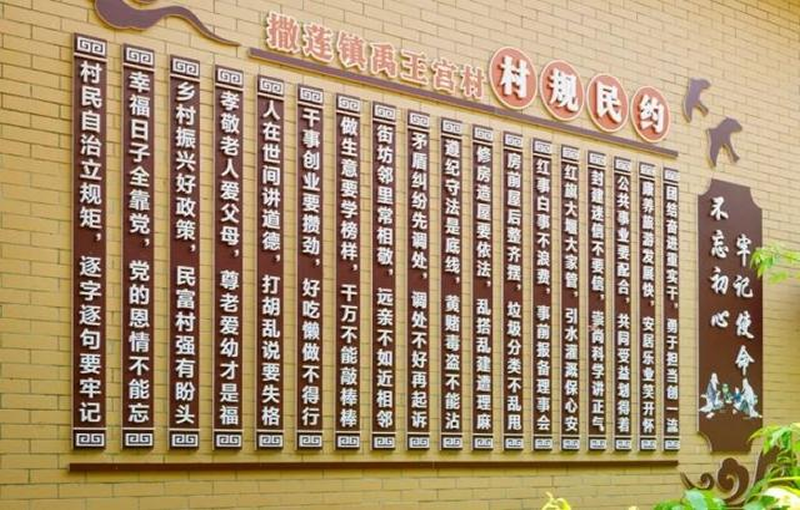 撒莲镇禹王宫村
村规民约
村民自治立规矩，逐字逐句要牢记
幸福日子全靠党，党的恩情不能忘
乡村振兴好政策，民富村强有盼头
孝敬老人爱父母，尊老爱幼才是福
人在世间讲道德，打胡乱说要失格
干事创业要攒劲，好吃懒做不得行
做生意要学榜样，千万不能敲棒棒
街坊邻里常相敬，远亲不如近相邻
矛盾纠纷先调处，调处不好再起诉
遵纪守法是底线，黄赌毒盗不能沾
修房造屋要依法，乱搭乱建遭理麻
房前屋后整齐摆，垃圾分类不乱甩
红事白事不浪费，事前报备理事会
红旗大堰大家管，引水灌溉保心安
封建迷信不要信，崇尚科学讲正气
公共事业要配合，共同受益划得着
康养旅游发展快，安居乐业笑开怀
团结奋进重实干，勇于担当创一流
不忘初心
牢记使命